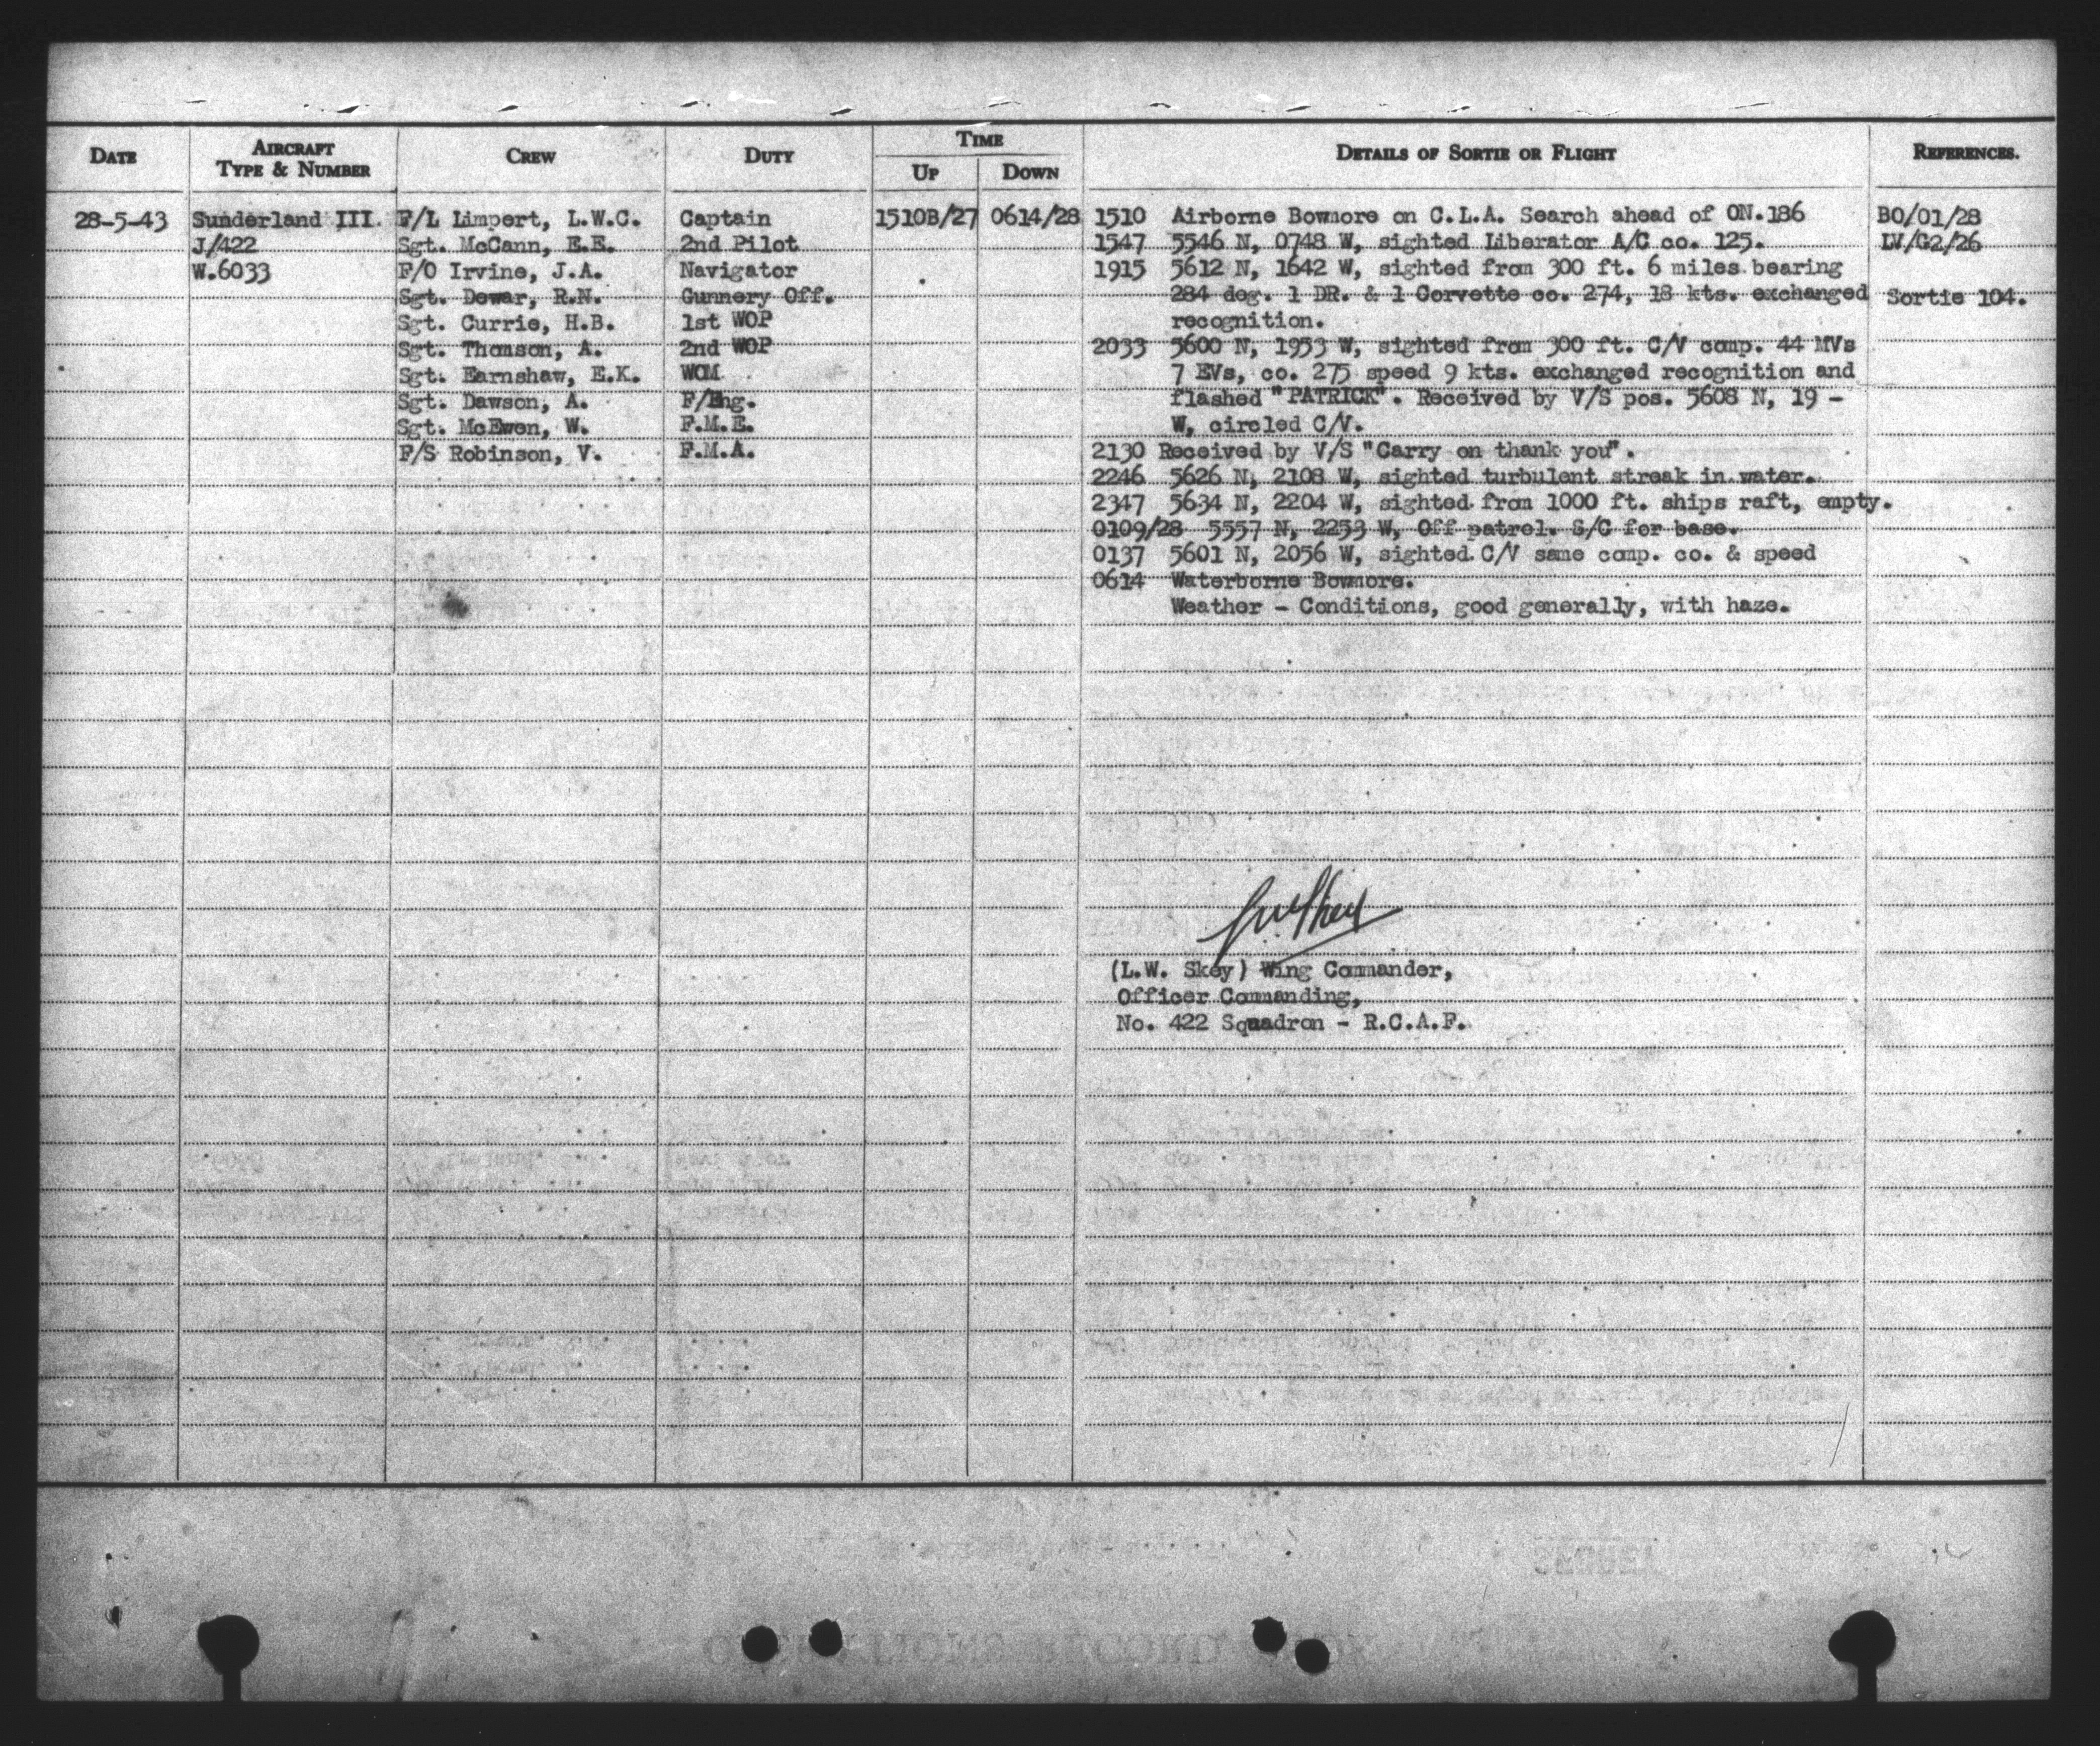 DATE AIRCRAFT TYPE & NUMBER CREW DUTY TIME UP DOWN DETAILS OF SORTIE OR FLIGHT REFERENCES.
28-5-43 Sunderland III. F/L Limpert, L.W.C. Captain 1510B/27 0614/28 1510 Airborne Bowmore on C.L.A. Search ahead of ON.186 BO/01/28
J/422 Sgt. McCann, E.E. 2nd Pilot 1547 5546 N, 0748 W, sighted Liberator A/C co. 125. LV/G2/26
W.6033 F/O Irvine, J.A. Navigator 1915 5612 N, 1642 W, sighted from 300 ft. 6 miles bearing
Sgt. Dewar, R.N. Gunnery Off. 284 deg. 1 DR. & 1 Corvette co. 274, 18 kts. exchanged Sortie 104.
Sgt. Currie, H.B. 1st WOP recognition.
Sgt. Thomson, A. 2nd WOP 2033 5600 N, 1953 W, sighted from 300 ft. C/V comp. 44 MVs
Sgt. Earnshaw, E.K. WOM 7 EVs, co. 275 speed 9 kts. exchanged recognition and
Sgt. Dawson, A. F/Eng. flashed "PATRICK". Received by V/S pos. 5608 N, 19 -
Sgt. McEwen, W. F.M.E. W, circled C/V.
F/S Robinson, V. F.M.A. 2130 Received by V/S "Carry on thank you".
2246 5626 N, 2108 W, sighted turbulent streak in water.
2347 5634 N, 2204 W, sighted from 1000 ft. ships raft, empty.
0109/28 5557 N, 2253 W, Off patrol. S/C for base.
0137 5601 N, 2056 W, sighted C/V same comp. co. & speed
0614 Waterborne Bowmore.
Weather - Conditions, good generally, with haze.
(L.W. Skey) Wing Commander,
Officer Commanding,
No. 422 Squadron - R.C.A.F.